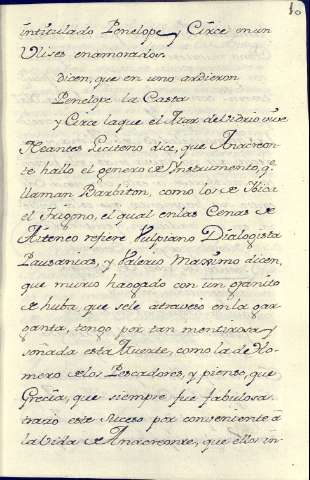 10
intitulado Penelope y Circe en un
Ulises enamorado.
dicen, que en uno ardieron
Penelope la Casta
y Circe la que el Mar del vidrio
Neantes Ciziceno dice, que Anacreon-
te hallo el genero de Instrumento, q.
llaman Barbiton, como los de Ibico
el Trigono, el qual en las Cenas de
Ateneo refiere Vulpiano Dialogista
Pausanias, y Valerio Maximo dicen,
que murio haogado con un granito
de huba, que sele atraveso en la gar-
ganta, tengo por tan mentirosa y
soñada esta Muerte, como la de Ho-
mero de los Pescadores, y pienso, que
Grecia, que siempre fue fabulosa,
trazo este suceso por conveniente á
la vida de Anacreonte, que ellos in-